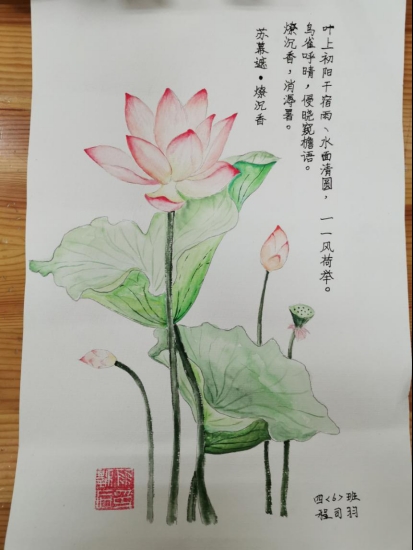 叶上初阳干宿雨、水面清圆，一一风荷举。
鸟雀呼晴，侵晓窥檐语。
燎沉香，消溽暑。
苏幕遮·燎沉香
四<6>班
程司羽